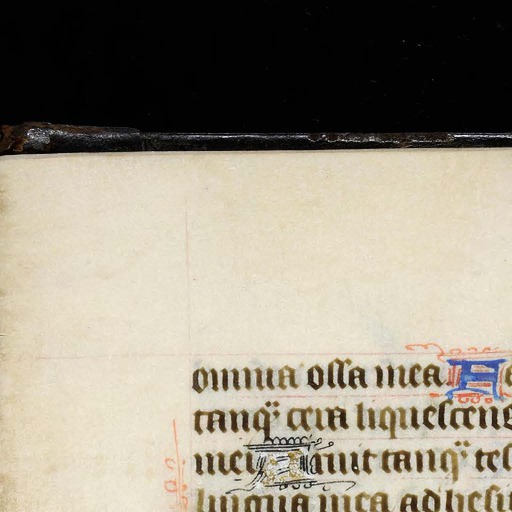 omnia ossa mea. F
tanq̃ cera liquescens
mei Aruit tanq̃ tes
lingua mea adhesi